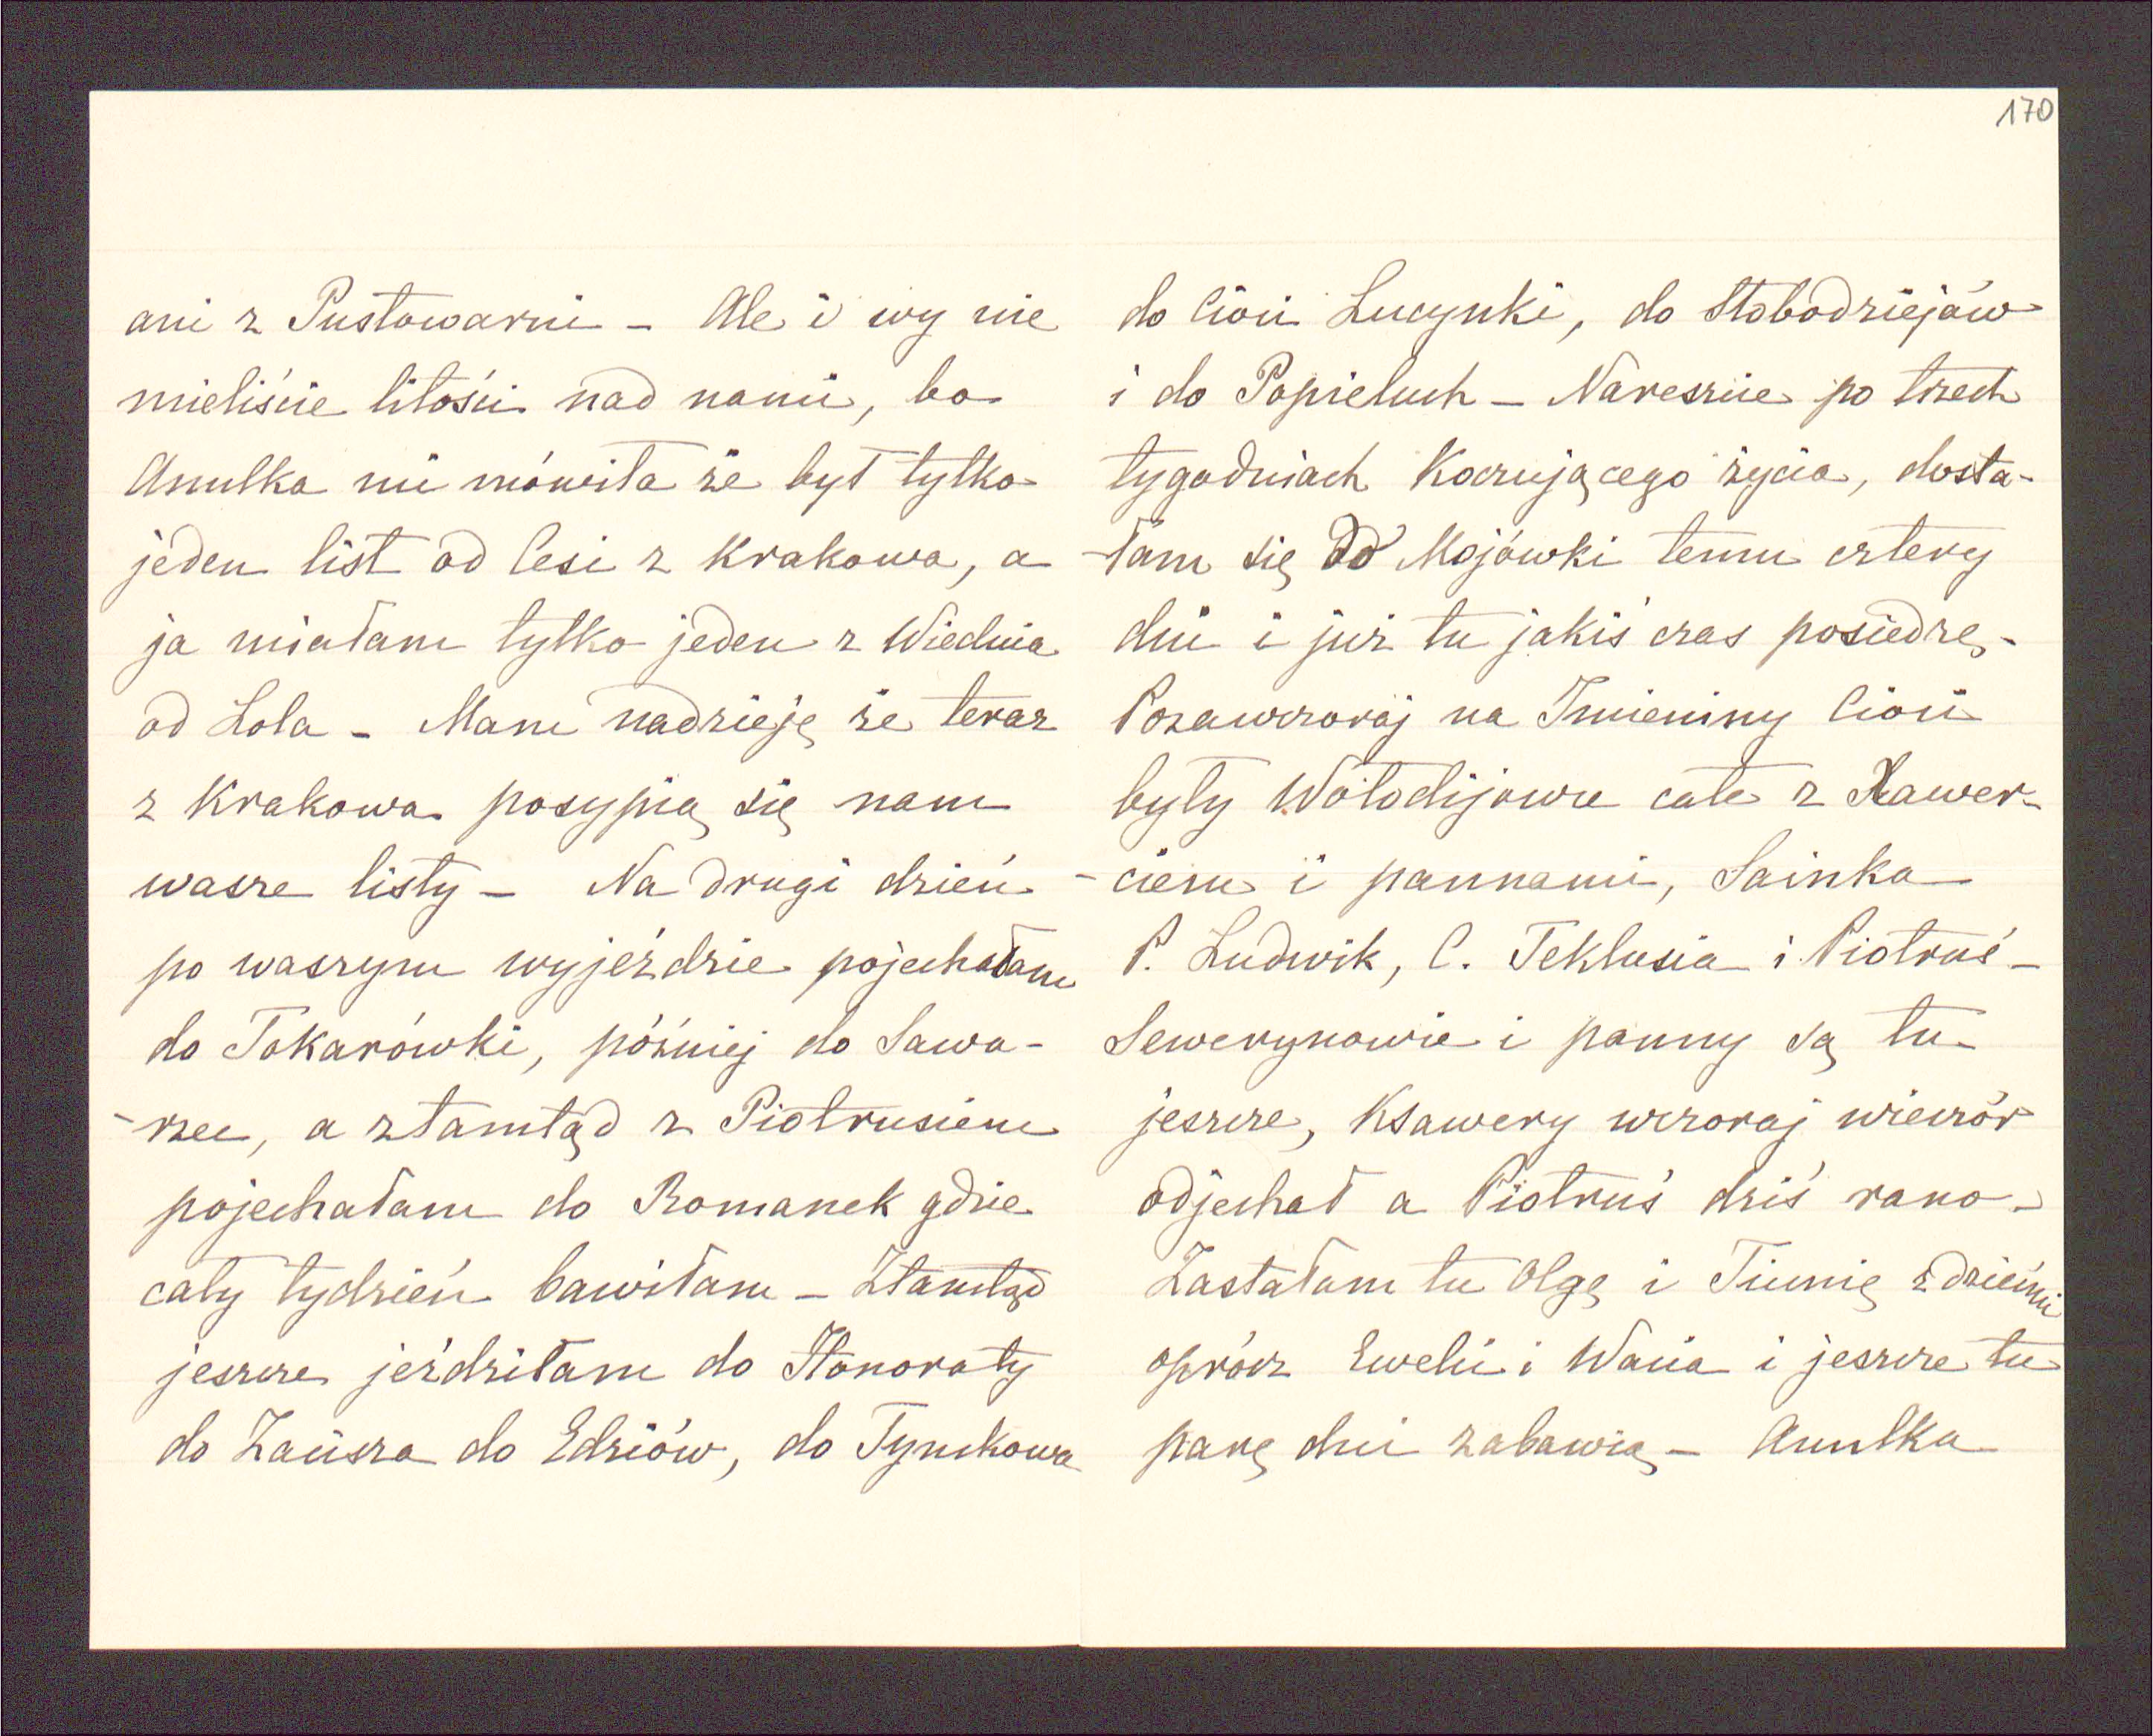 170
ani z Pustowarni – Ale i wy nie
mieliście litości nad nami, bo
Anulka mi mówiła że był tylko
jeden list od Cesi z Krakowa, a
ja miałam tylko jeden z Wiednia
od Lola – Mam nadzieję że teraz
z Krakowa posypią się nam
wasze listy – Na drugi dzień
po waszym wyjeździe pojechałam
do Tokarówki, późniéj do Sawa-
-rzec, a ztamtąd z Piotrusiem
pojechałam do Romanek gdzie
cały tydzień bawiłam – Ztamtąd
jeszcze jeździłam do Honoraty
do Edziów, do Tymkowa
do Cioci Lucynki, do Słobodziejów
i do Popieluch – Nareszcie po trzech
tygodniach Koczującego życia, dosta-
-łam się do Mojówki temu cztery
dni i już tu jakiś czas posiedzę –
Pozawczoraj na Imieniny Cioci
były Wołodijowce całe z Xawer-
-ciem i pannami, Sainka
P. Ludwik, C. Teklusia i Piotruś –
Sewerynowie i panny są tu
jeszcze, Ksawery wczoraj wieczór
odjechał a Piotruś dziś rano –
Zastałam tu Olgę i Tiunię z dziećmi
oprócz Ewelci i Wacia i jeszcze tu
parę dni zabawią – Anulka